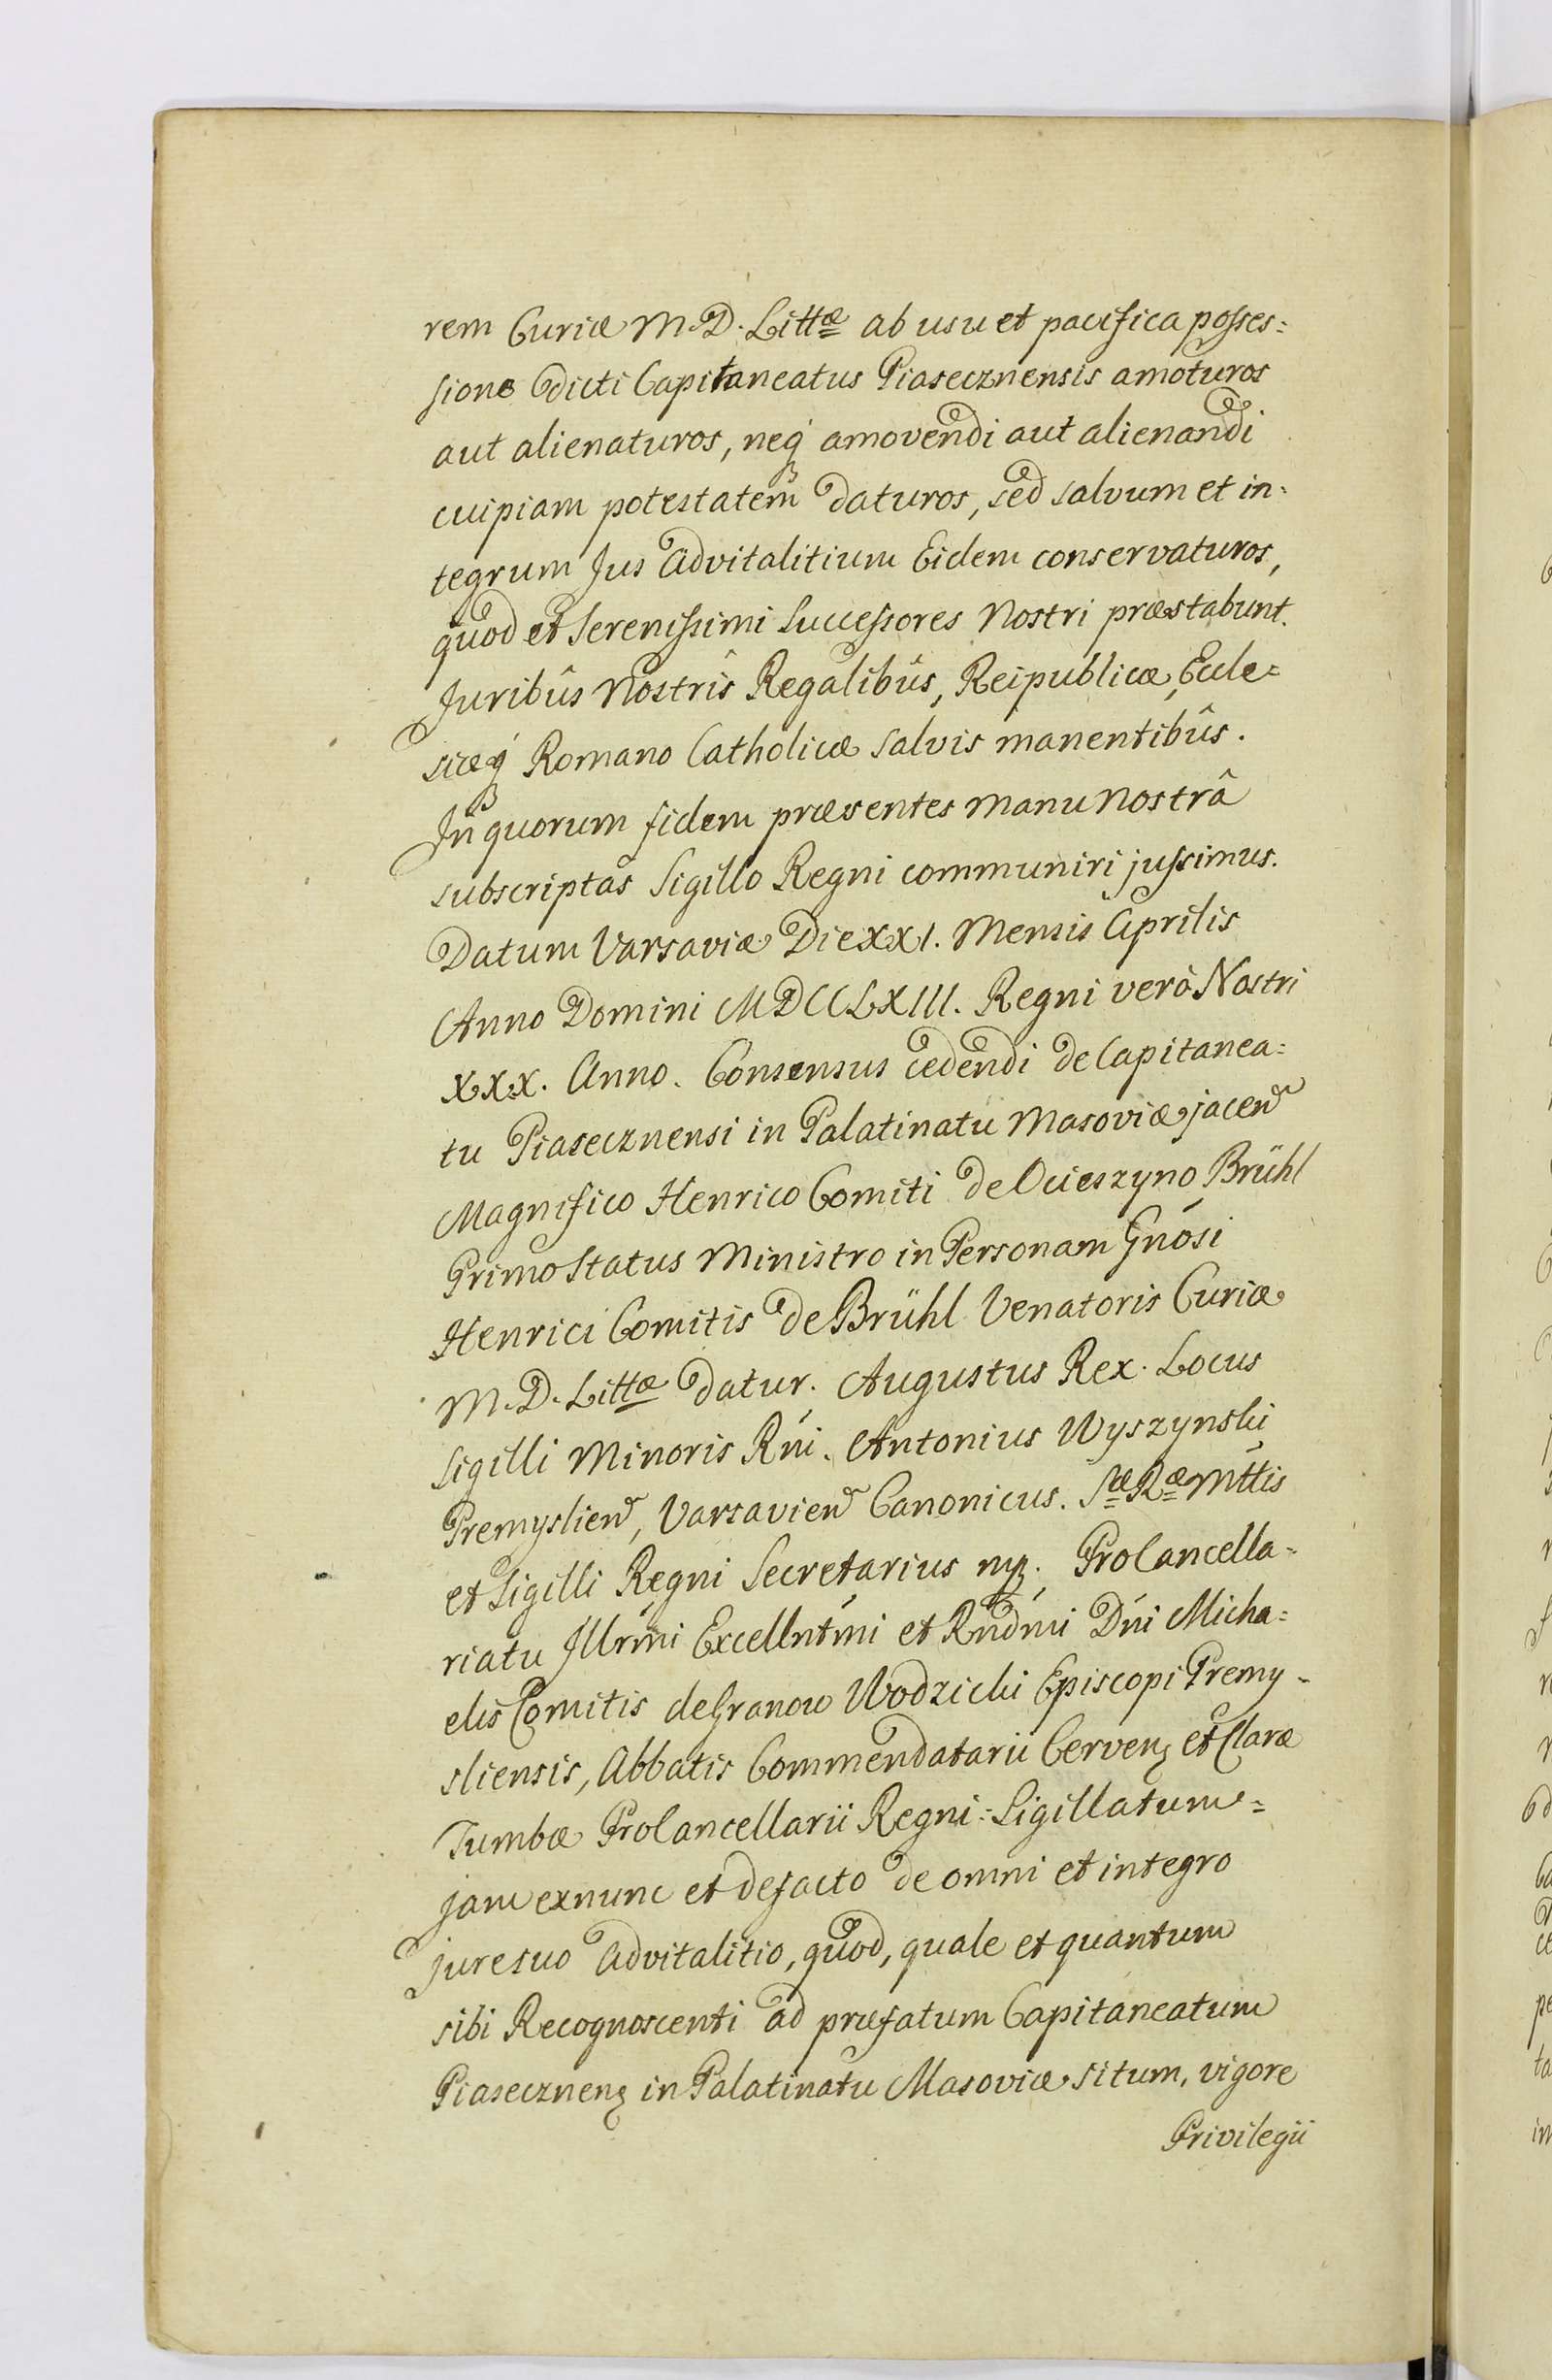 rem Curiæ M. D. Littæ ab usu et pacifica posses=
sione Edicti Capitaneatus Piasecznensis amoturos
aut alienaturos, neq́ amovendi aut alienandi
cuipiam potestatem daturos, sed salvum et in=
tegrum Jus Advitalitium Eidem conservaturos,
quod et Serenissimi Successores Nostri præstabunt.
Juribûs Nostris Regalibûs, Reipublicæ, Eccle=
siæq́ Romano Catholicæ salvis manentibûs.
In quorum fidem præsentes Manu Nostrâ
subscriptas Sigillo Regni communiri jussimus.
Datum Varsaviæ Die XXI. Mensis Aprilis
Anno Domini MDCCLXIII. Regni verò Nostri
XXX. Anno. Consensus cedendi de Capitanea=
tu Piasecznensi in Palatinatu Masoviæ jacen̄
Magnifico Henrico Comiti de Ocieszyno Brühl
Primo Status Ministro in Personam Gnósi
Henrici Comitis de Brühl Venatoris Curiæ
M. D. Littæ datur. Augustus Rex. Locus
Sigilli Minoris Rńi. Antonius Wyszynski
Premyslien̄, Varsavien̄ Canonicus. Sæ Ræ Mttis
et Sigilli Regni Secretarius mp. ProCancella=
riatu Illrḿi Excellntḿi et Rndḿi Dńi Micha=
elis Comitis de Granow Wodzicki Episcopi Premy=
sliensis, Abbatis Commendatarii Cerven: et Claræ
Tumbæ ProCancellarii Regni: Sigillatum=
jam exnunc et defacto de omni et integro
jure suo Advitalitio, quod, quale et quantum
sibi Recognoscenti ad præfatum Capitaneatum
Piasecznen: in Palatinatu Masoviæ situm, vigore
Privilegii